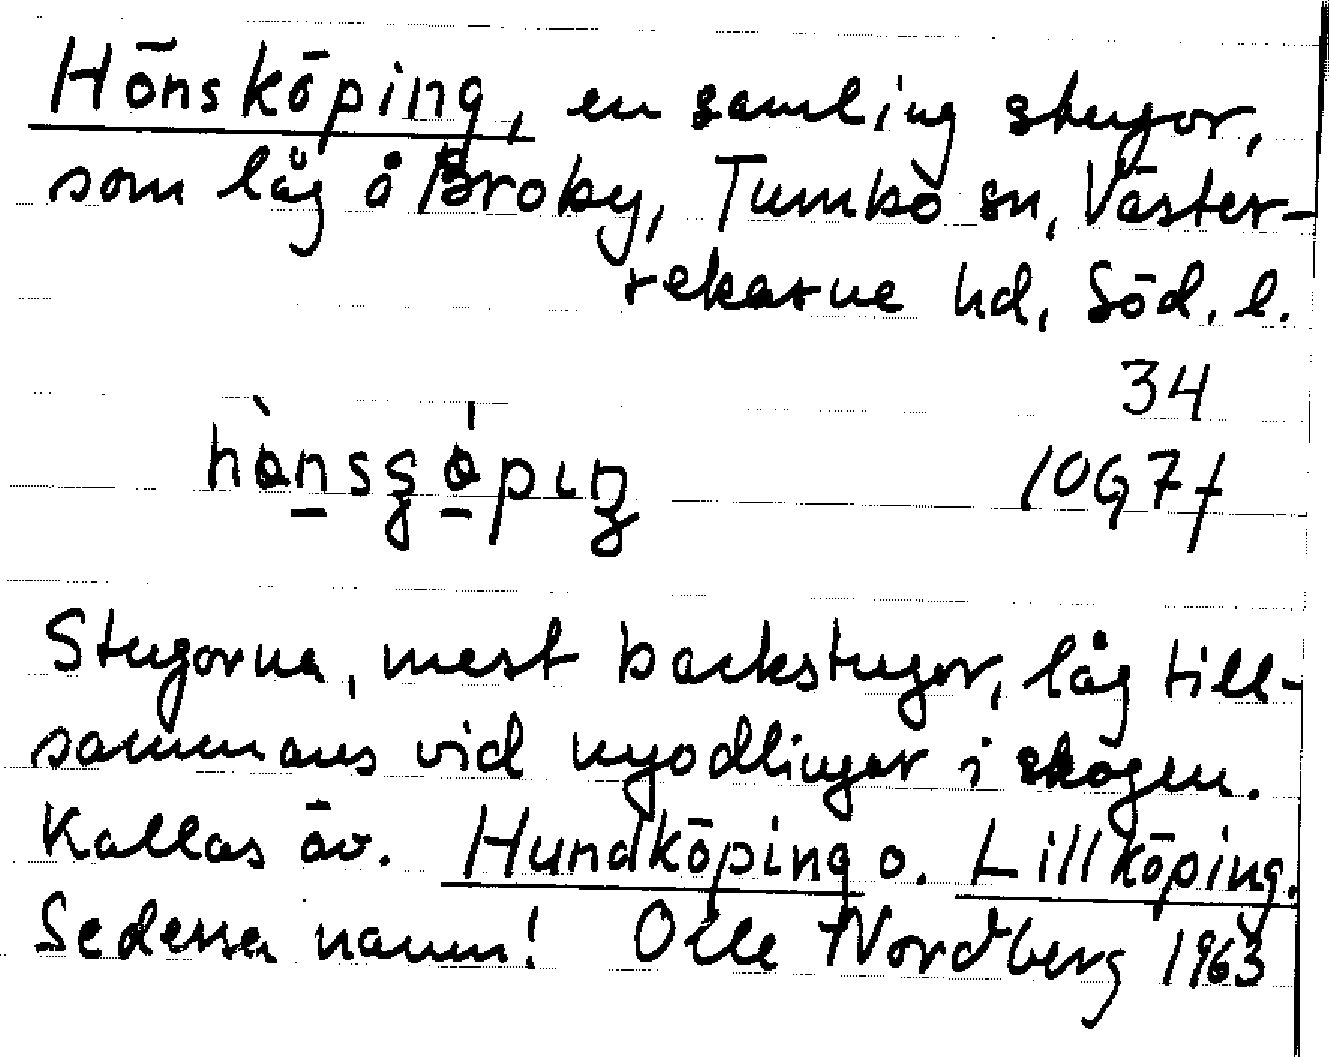 Hönsköping, en samling stugor,
som låg å Broby, Tumbo sn, Väster-
rekarne hd, Söd. l.
34
10G7f
Stugorna, mest backstugor, låg till-
sammans vid nyodlingar i skogen.
Kallas äv. Hundköping o. Lillköping.
Se dessa namn! Olle Nordberg 1963